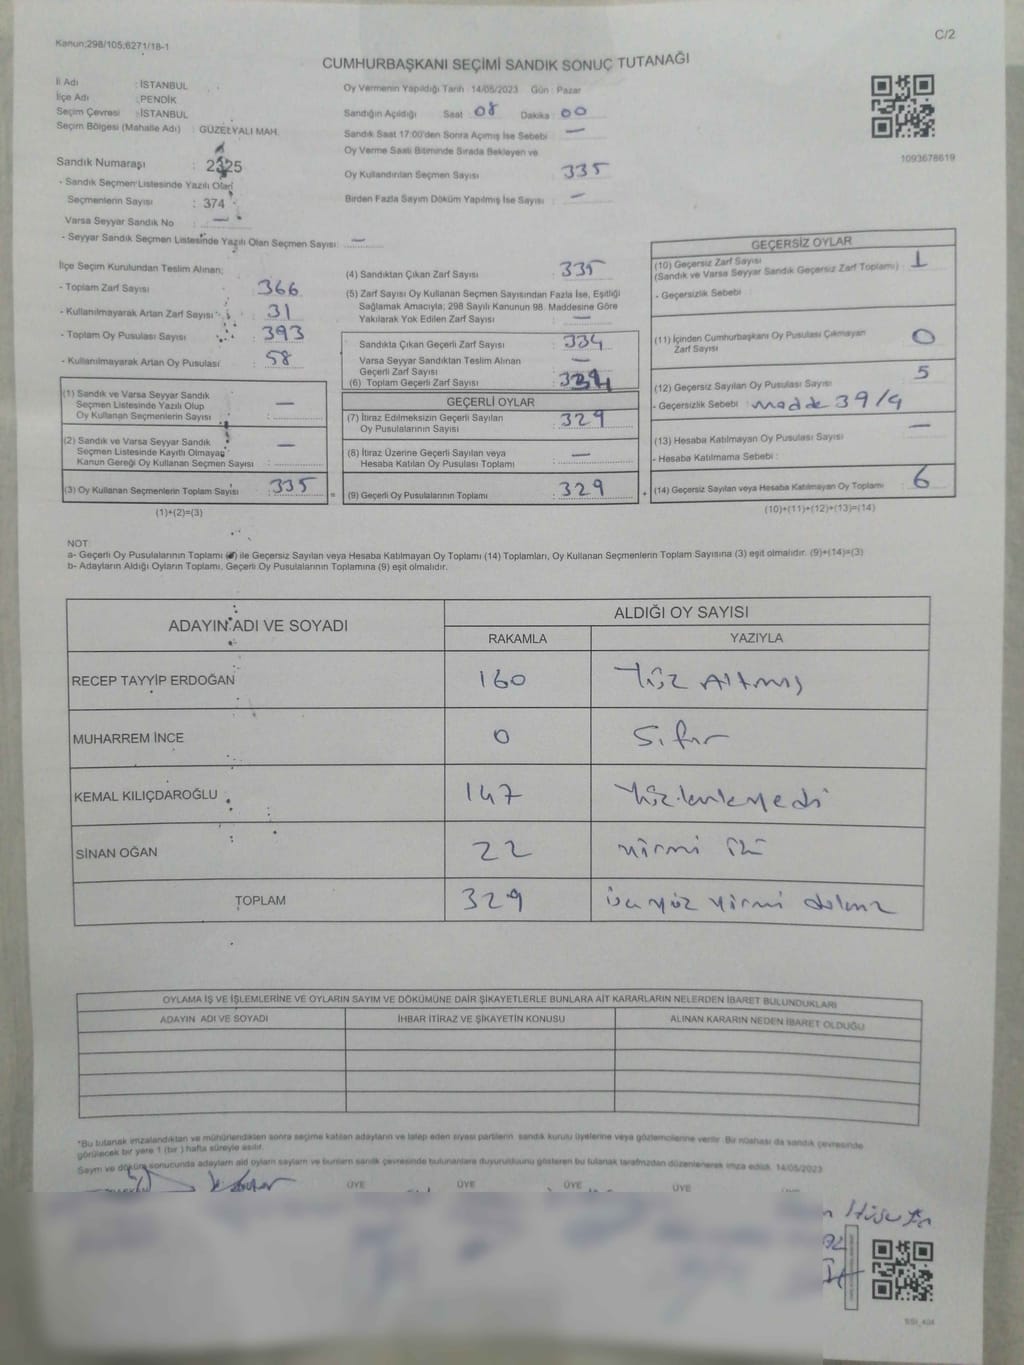 Kanun;298/105;6271/18-1
C/2
CUMHURBAŞKANI SEÇİMİ SANDIK SONUÇ TUTANAĞI
İl Adı : İSTANBUL
İlçe Adı : PENDİK
Seçim Çevresi : İSTANBUL
Seçim Bölgesi (Mahalle Adı) : GÜZELYALI MAH.
Sandık Numarası :
- Sandık Seçmen Listesinde Yazılı Olan
Seçmenlerin Sayısı : 374
Varsa Seyyar Sandık No : —
- Seyyar Sandık Seçmen Listesinde Yazılı Olan Seçmen Sayısı: —
Oy Vermenin Yapıldığı Tarih 14/05/2023 Gün : Pazar
Sandığın Açıldığı Saat : 08 Dakika : 00
Sandık Saat 17:00'den Sonra Açımış İse Sebebi : —
Oy Verme Saati Bitiminde Sırada Bekleyen ve
Oy Kullandırılan Seçmen Sayısı : 335
Birden Fazla Sayım Döküm Yapılmış İse Sayısı : —
1093678619
İlçe Seçim Kurulundan Teslim Alınan;
- Toplam Zarf Sayısı : 366
- Kullanılmayarak Artan Zarf Sayısı : 31
- Toplam Oy Pusulası Sayısı : 393
- Kullanılmayarak Artan Oy Pusulası : 58
(1) Sandık ve Varsa Seyyar Sandık
Seçmen Listesinde Yazılı Olup
Oy Kullanan Seçmenlerin Sayısı : —
(2) Sandık ve Varsa Seyyar Sandık
Seçmen Listesinde Kayıtlı Olmayan
Kanun Gereği Oy Kullanan Seçmen Sayısı : —
(3) Oy Kullanan Seçmenlerin Toplam Sayısı : 335
(1)+(2)=(3)
(4) Sandıktan Çıkan Zarf Sayısı : 335
(5) Zarf Sayısı Oy Kullanan Seçmen Sayısından Fazla İse, Eşitliği
Sağlamak Amacıyla; 298 Sayılı Kanunun 98. Maddesine Göre
Yakılarak Yok Edilen Zarf Sayısı : —
Sandıkta Çıkan Geçerli Zarf Sayısı : 334
Varsa Seyyar Sandıktan Teslim Alınan
Geçerli Zarf Sayısı : —
(6) Toplam Geçerli Zarf Sayısı : 334
GEÇERLİ OYLAR
(7) İtiraz Edilmeksizin Geçerli Sayılan
Oy Pusulalarının Sayısı : 329
(8) İtiraz Üzerine Geçerli Sayılan veya
Hesaba Katılan Oy Pusulası Toplamı : —
(9) Geçerli Oy Pusulalarının Toplamı : 329
GEÇERSİZ OYLAR
(10) Geçersiz Zarf Sayısı : 1
(Sandık ve Varsa Seyyar Sandık Geçersiz Zarf Toplamı)
- Geçersizlik Sebebi :
(11) İçinden Cumhurbaşkanı Oy Pusulası Çıkmayan
Zarf Sayısı : 0
(12) Geçersiz Sayılan Oy Pusulası Sayısı : 5
- Geçersizlik Sebebi : madde 39/4
(13) Hesaba Katılmayan Oy Pusulası Sayısı : —
- Hesaba Katılmama Sebebi :
(14) Geçersiz Sayılan veya Hesaba Katılmayan Oy Toplamı : 6
(10)+(11)+(12)+(13)=(14)
NOT:
a- Geçerli Oy Pusulalarının Toplamı (9) ile Geçersiz Sayılan veya Hesaba Katılmayan Oy Toplamı (14) Toplamları, Oy Kullanan Seçmenlerin Toplam Sayısına (3) eşit olmalıdır. (9)+(14)=(3)
b- Adayların Aldığı Oyların Toplamı, Geçerli Oy Pusulalarının Toplamına (9) eşit olmalıdır.
ADAYIN ADI VE SOYADI
ALDIĞI OY SAYISI
RAKAMLA YAZIYLA
RECEP TAYYİP ERDOĞAN 160 Yüz Altmış
MUHARREM İNCE 0 Sıfır
KEMAL KILIÇDAROĞLU 147 Yüzkırkyedi
SİNAN OĞAN 22 yirmi iki
TOPLAM 329 üçyüz yirmi dokuz
OYLAMA İŞ VE İŞLEMLERİNE VE OYLARIN SAYIM VE DÖKÜMÜNE DAİR ŞİKAYETLERLE BUNLARA AİT KARARLARIN NELERDEN İBARET BULUNDUKLARI
ADAYIN ADI VE SOYADI İHBAR İTİRAZ VE ŞİKAYETİN KONUSU ALINAN KARARIN NEDEN İBARET OLDUĞU
*Bu tutanak imzalandıktan ve mühürlendikten sonra seçime katılan adayların ve talep eden siyasi partilerin sandık kurulu üyelerine veya gözlemcilerine verilir. Bir nüshası da sandık çevresinde
görülecek bir yere 1 (bir ) hafta süreyle asılır.
Sayım ve döküm sonucunda adayların aldığı oyların sayılarını ve bunların sandık çevresinde bulunanlara duyurulduğunu gösteren bu tutanak tarafımızdan düzenlenerek imza edildi. 14/05/2023
ÜYE ÜYE ÜYE ÜYE